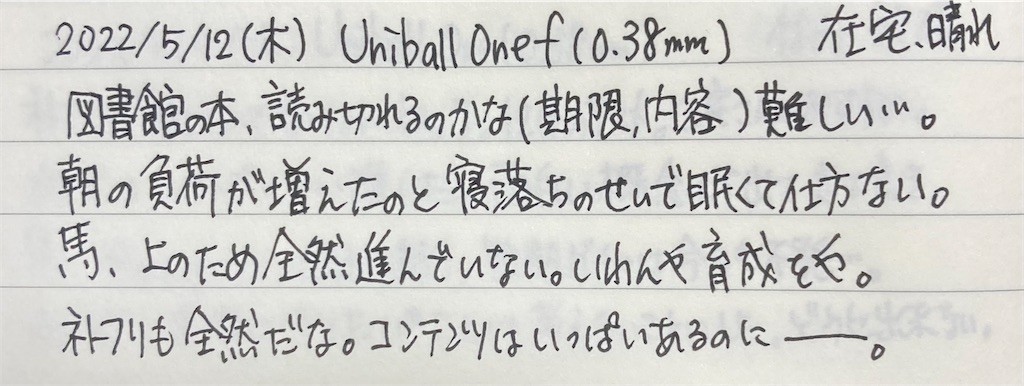 2022/5/12(木) Uniball One f (0.38mm) 在宅、晴れ
図書館の本、読み切れるのかな(期限,内容)難しい…。
朝の負荷が増えたのと寝落ちのせいで眠くて仕方ない。
馬、上のため全然進んでいない。いわんや育成をや。
ネトフリも全然だな。コンテンツはいっぱいあるのに――。